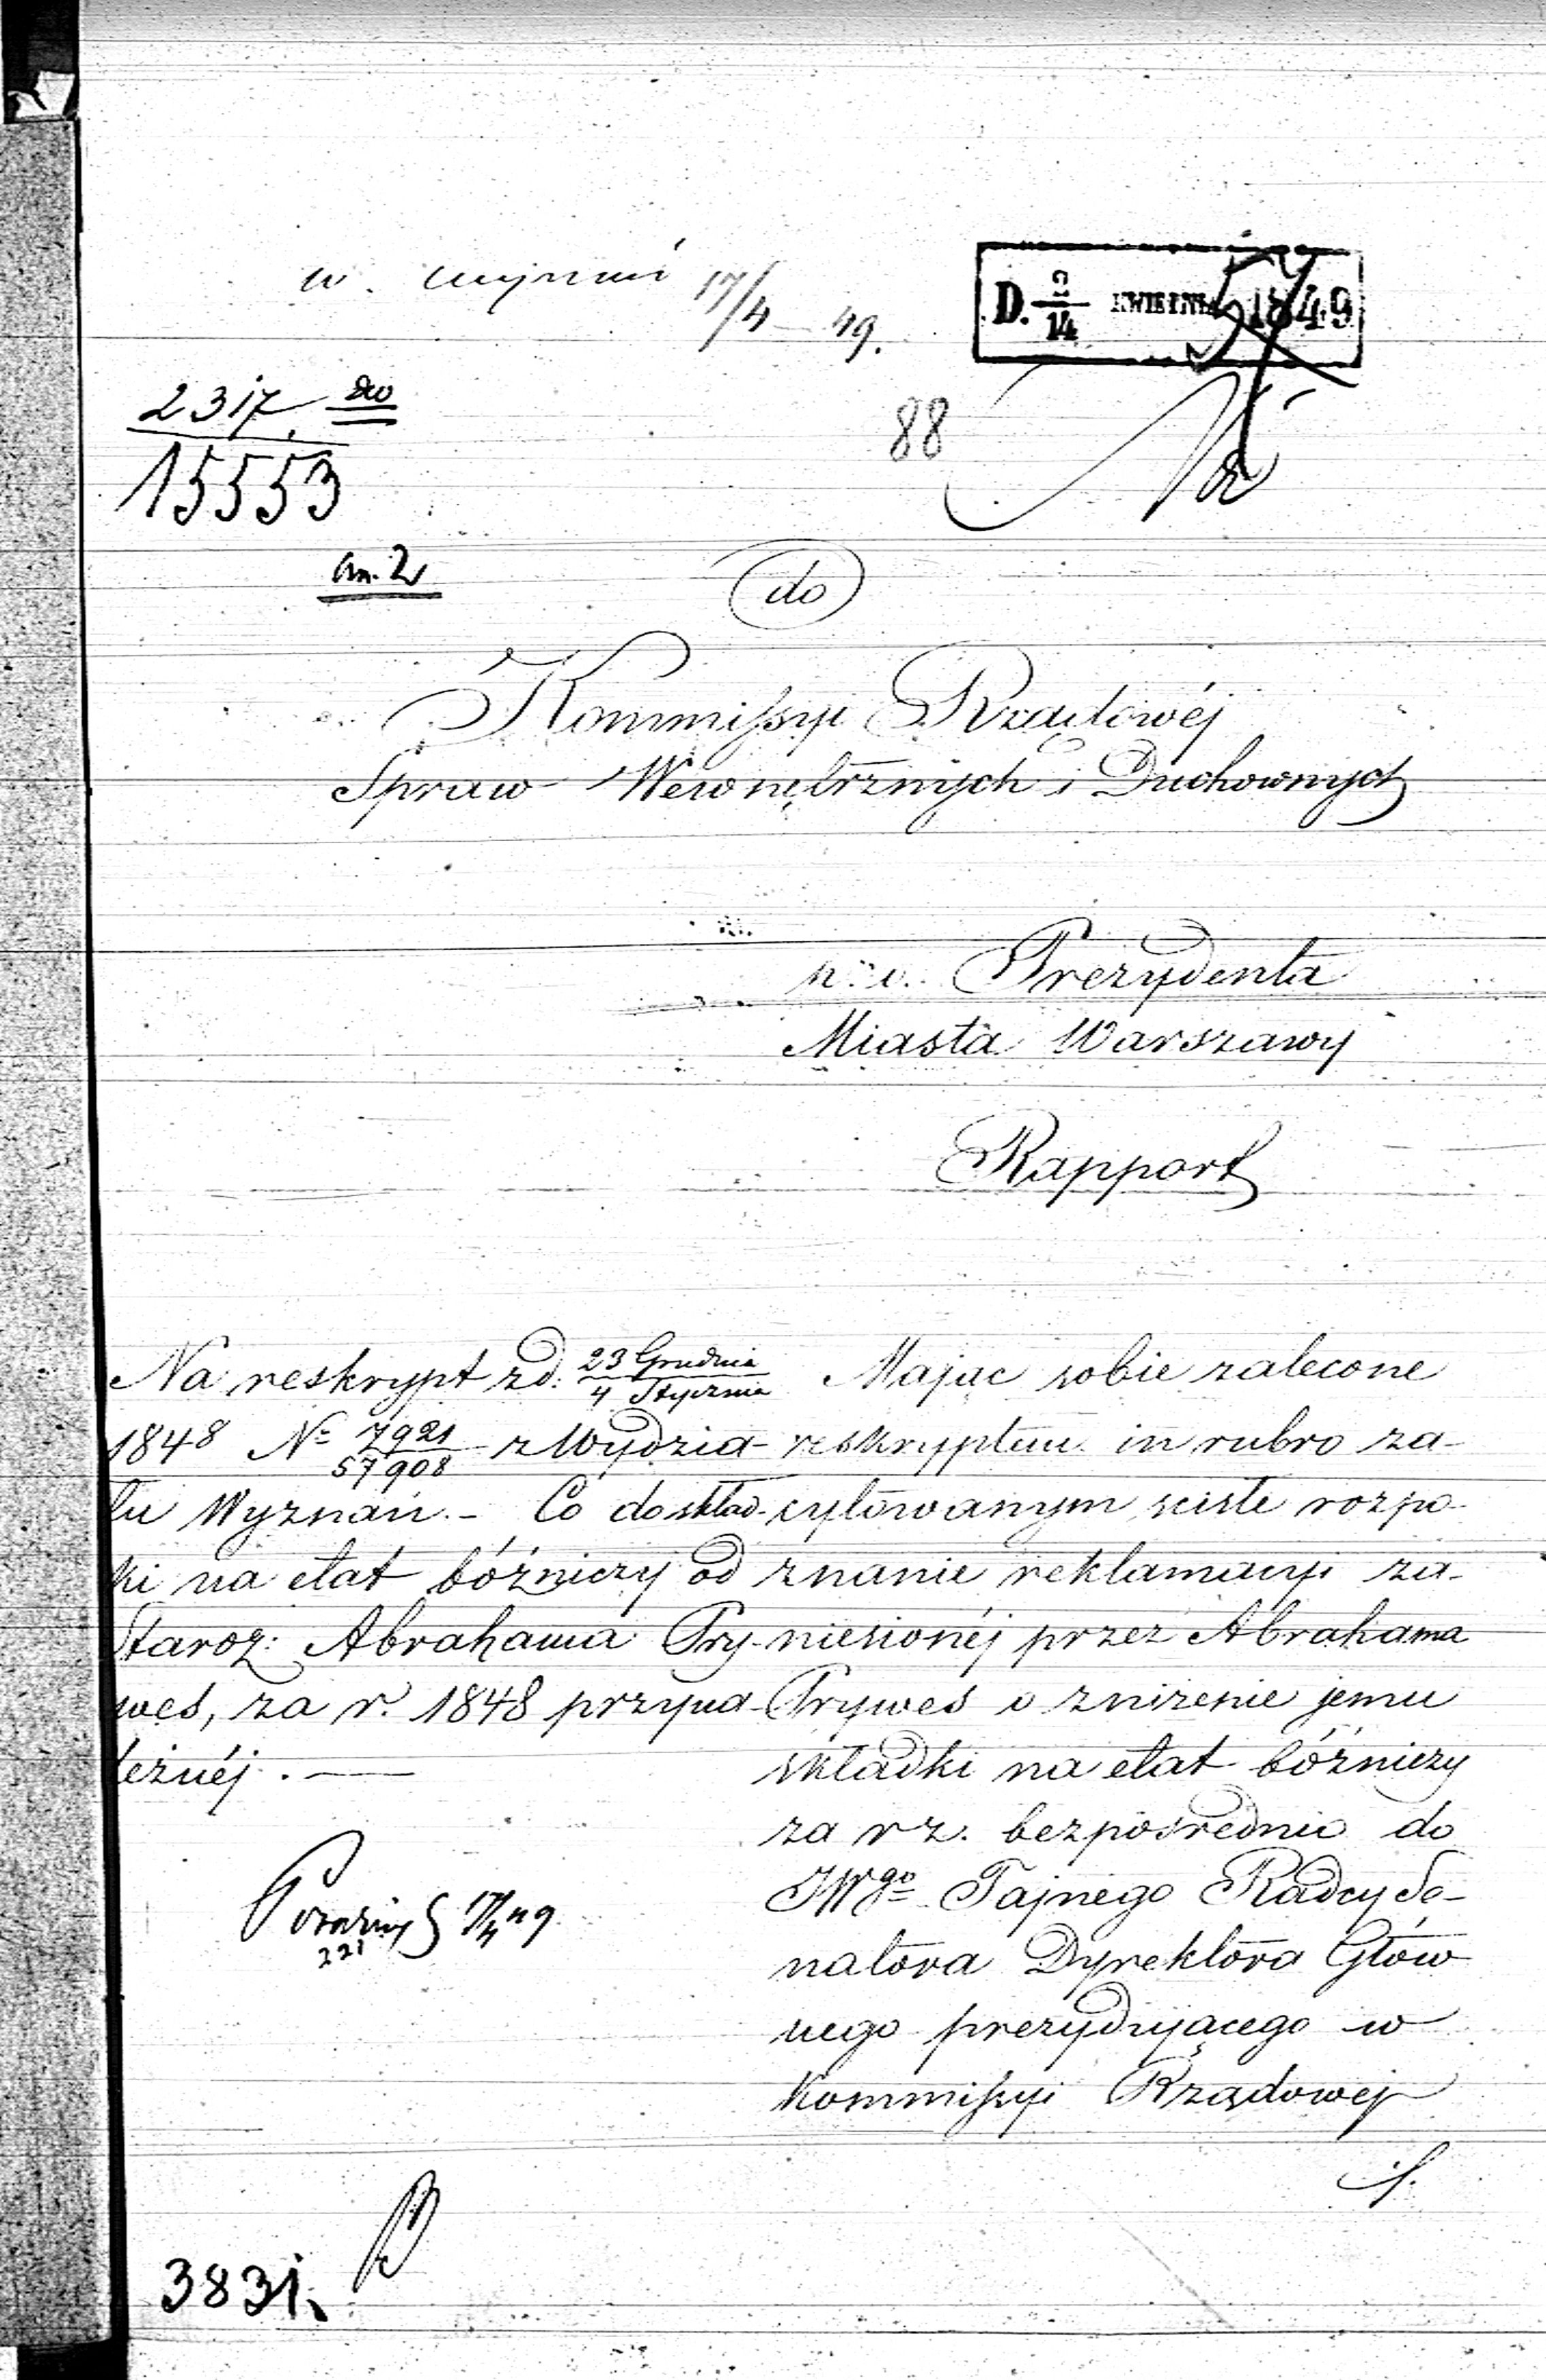 17/4 49.
D. 2/14 KWIETNIA 1849
57
2317
15553
88
an. 2
do
Kommissyi Rządowéj
Spraw Wewnętrznych i Duchownych
p. o. Prezydenta
Miasta Warszawy
Rapport
Na reskrypt z d: 23 Grudnia / 4 Stycznia
1848 Nº 7921/57908 z Wydzia-
łu Wyznań. - Co do skład-
ki na etat bóżniczy od
Staroz: Abrahama Pry-
wes, za r. 1848 przypa-
leżnéj. —
Mając sobie zalecone
reskryptem in rubro za-
cytowanym ściśle rozpo-
znanie reklamacyi za-
niesionéj przez Abrahama
Prywes o zniżenie jemu
składki na etat bóżniczy
za r z. bezpośrednio do
JWgo Tajnego Radcy Se-
natora Dyrektora Głów
nego prezydującego w
Kommissyi Rządowej
221
17/4 49
3831.